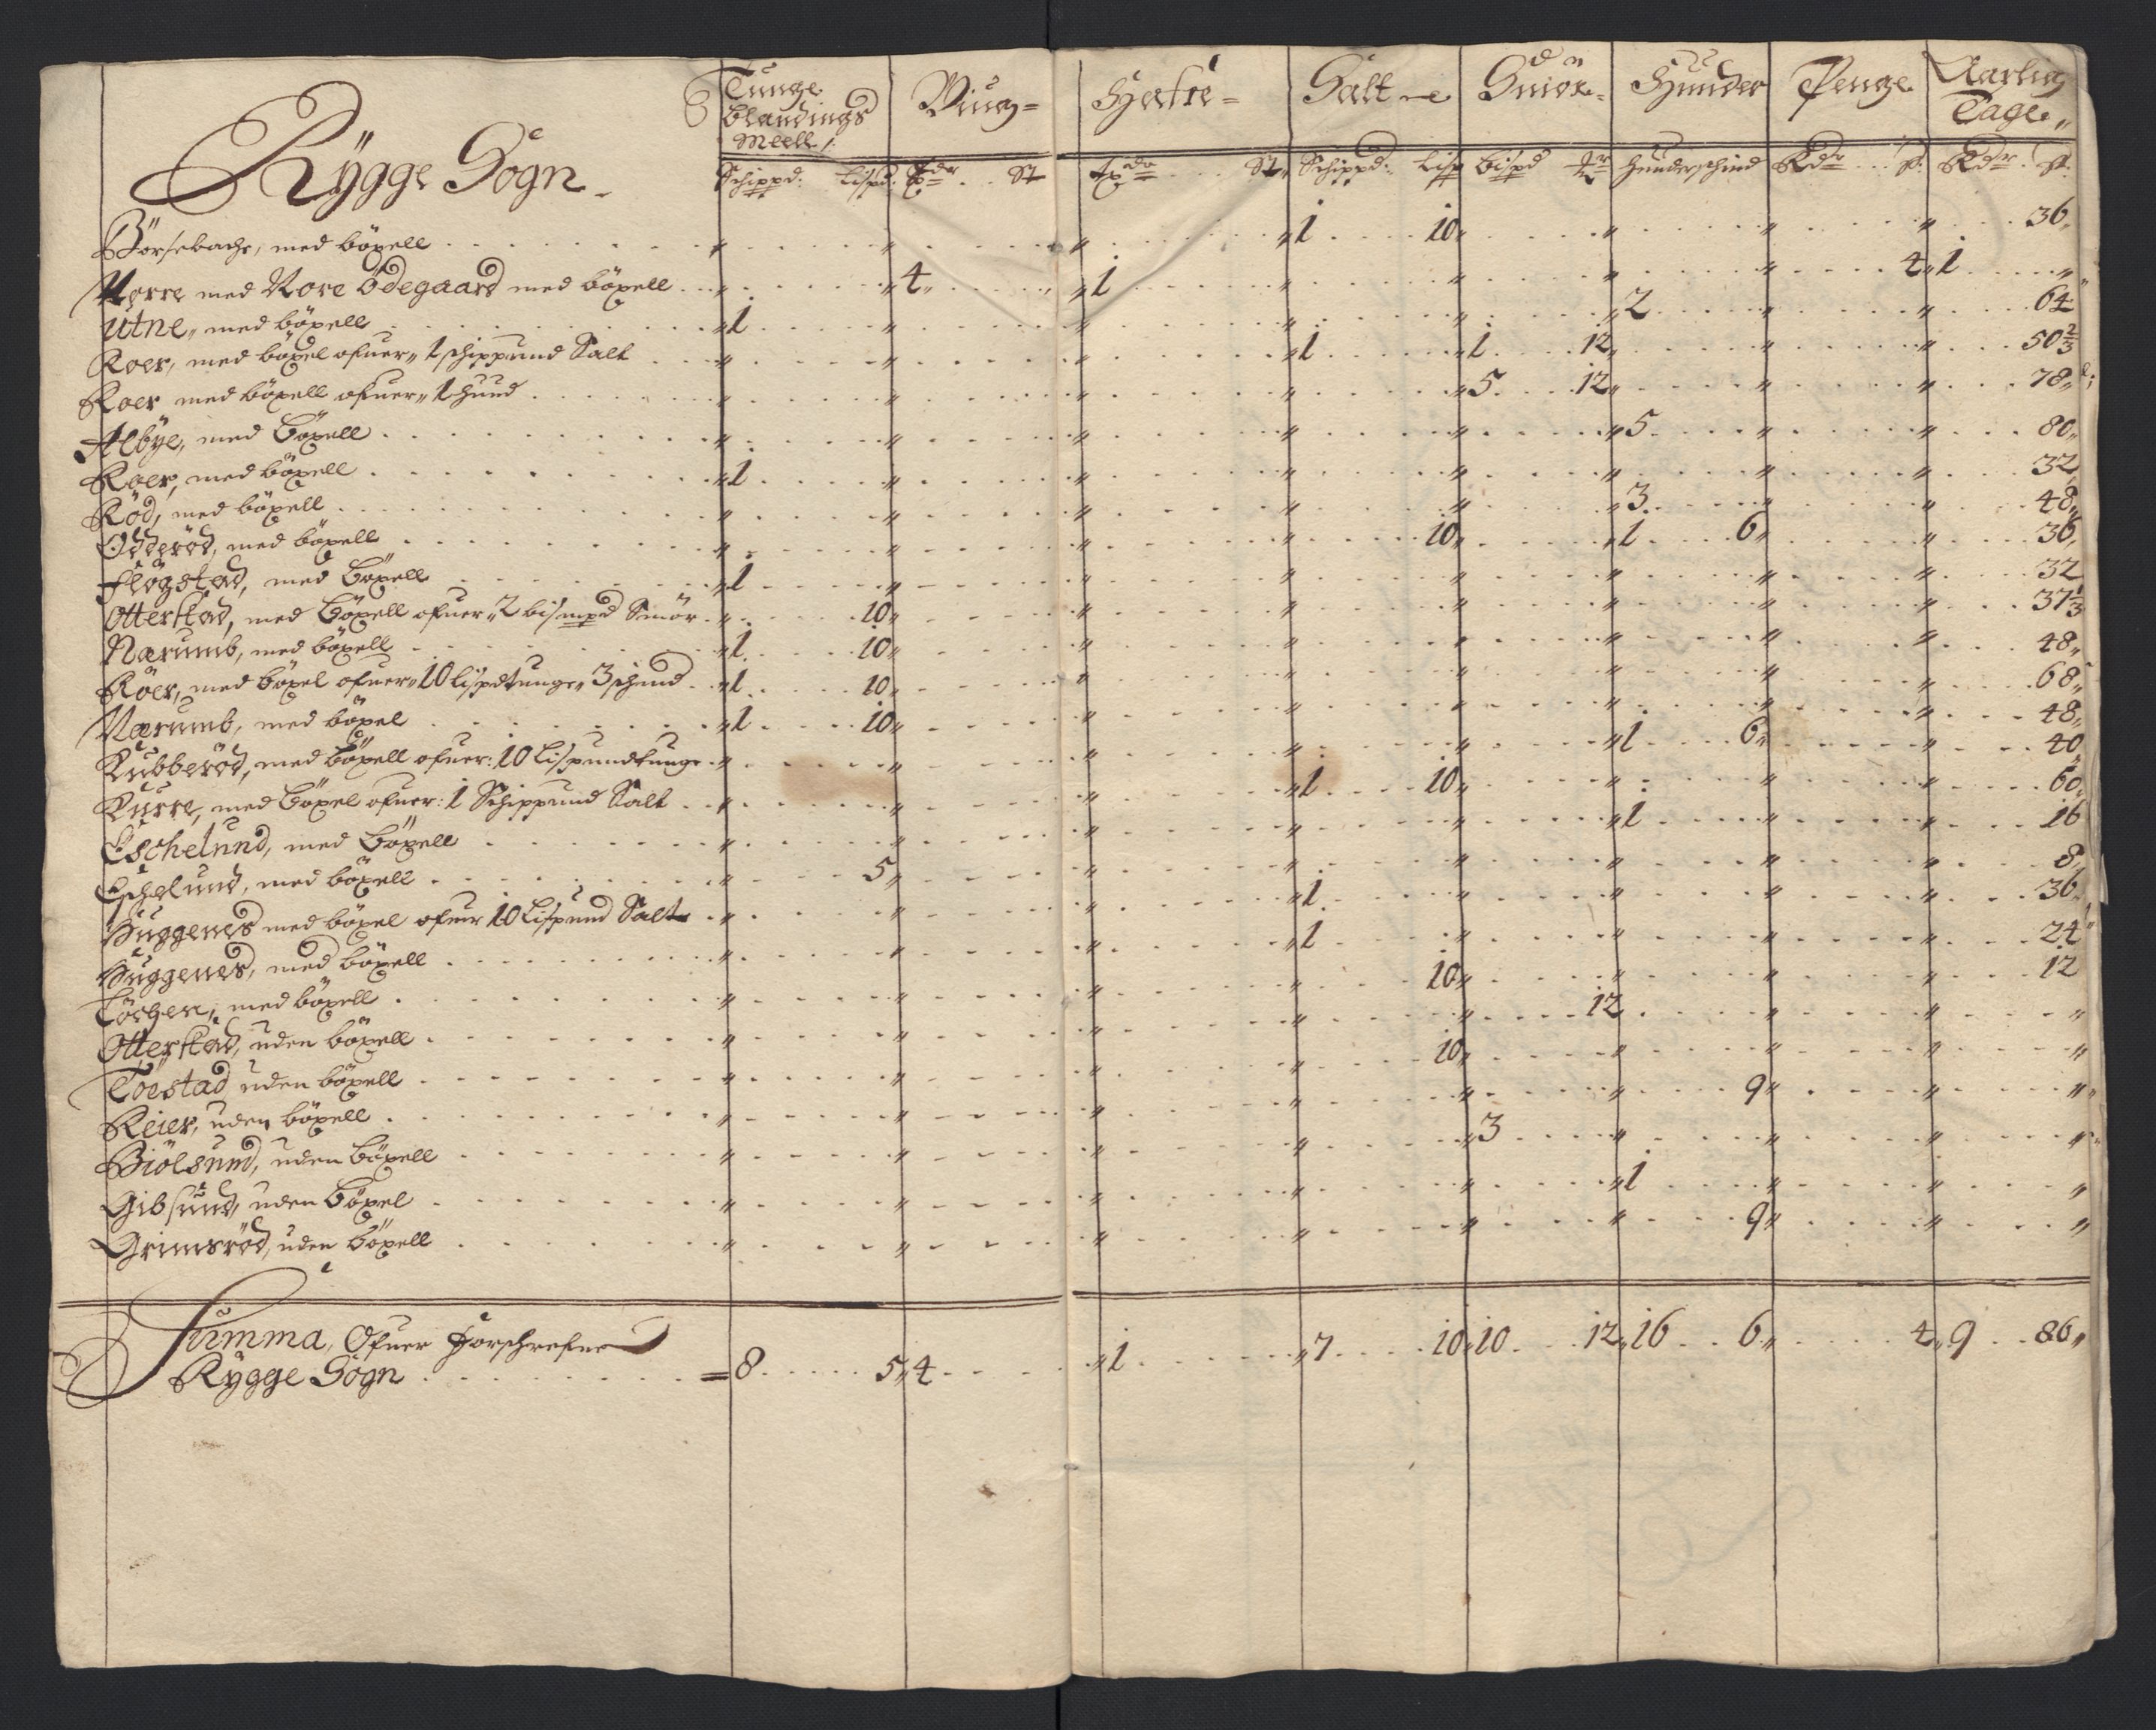 Rÿgge Sogn
Tunge blandings Meell Biug Hafre Salt Smör Huuder Penge Aarlig Tage
Schippd: Lispd: Tdr St Tdr St Schippd: Lisp bispd mr huuderschind Rdr s: Rdr s:
Börsebache, med böxell 1 10 36
Nerre med Nore Ödegaard med böxell 4 1 4 1
Utne, med böxell 1 2 64
Roer, med böxel ofuer 1 schippund Salt 1 1 12 50 2/3
Roer med böxell ofuer 1 huud 5 12 78
Albÿe, med Böxell 5 80
Roer, med böxell 1 32
Röd, med böxell 3 48
Odderöd, med böxell 10 1 6 36
Flogstad, med Böxell 1 32
Otterstad, med Böxell ofuer 2 bismpd Smör 10 37 1/3
Narumb, med böxell 1 10 48
Röer, med böxel ofuer 10 lispd tunge 3 schind 1 10 68
Narumb, med böxel 1 10 48
Kubberöd, med böxell ofuer: 10 Lispund tunge 1 6 40
Kurre, med Böxel ofuer: 1 Schippund Salt 1 10 60
Eschelund, med Böxell 1 16
Eschelund, med böxell 5 8
Huggenes med böxel ofuer 10 Lispund Salt 1 36
Huggenes, med böxell 1 24
Löchen, med böxell 10 12
Otterstad, uden böxell 12
Töestad uden böxell 10
Reier, uden böxell 9
Biölsund, uden böxell 3
Gibsund, uden Böxel 1
Grimsröd, uden böxell 9
Summa, Ofuer Forschrefne
Rÿgge Sogn 8 5 4 1 7 10 10 12 16 6 4 9 86